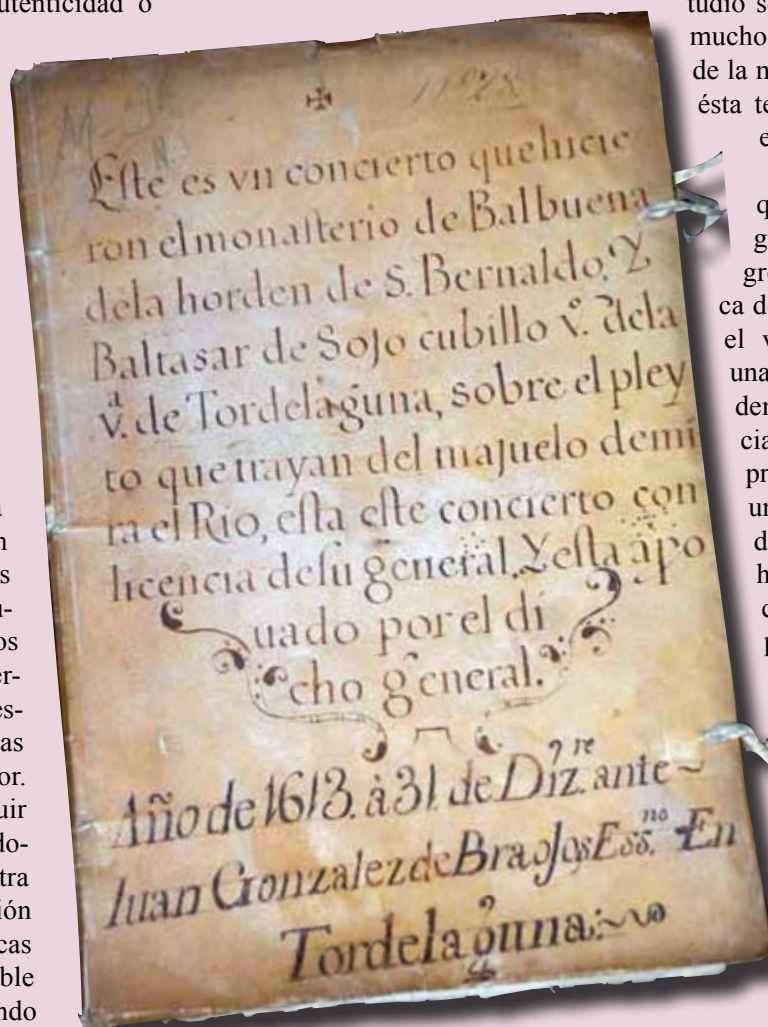 utenticidad o
Eſte es vn concierto que hicie
ron el monaſterio de Balbuena
dela horden de S. Bernaldo. Y
Baltasar de Sojo cubillo v.º dela
v.ª de Tordelaguna, sobre el pley
to que trayan del majuelo de mi
ra el Rio, eſta eſte concierto con
licencia deſu general. Y eſta apo
uado por el di
cho general.
Año de 1613. à 31. de Diz.re ante
Iuan Gonzalez de Braojos Ess.no En
Tordelaguna
os
er-
es-
as
or.
uir
do-
tra
ión
cas
ble
ndo
tudio s
mucho
de la m
ésta te
ca d
el v
una
der
cia
pr